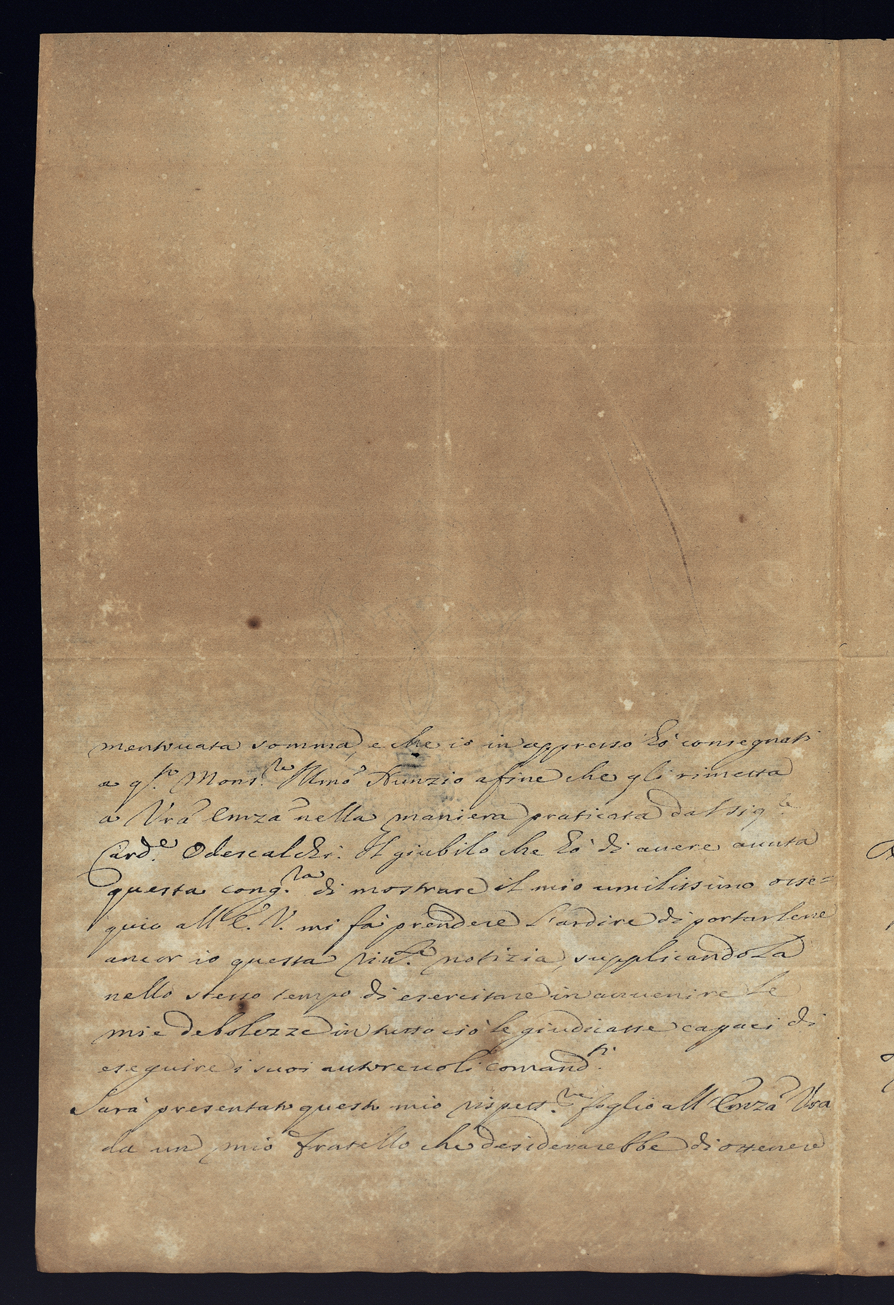 mentuata somma, e che io in appresso hò consegnati
a q.sto Mons.re Ill.mo Nunzio afine che gli rimetta
a Vrã Emza nella maniera praticata dal Sig.re
Card.e Odescalchi. Il giubilo che hò di avere avuta
questa cong.ra di mostrare il mio umilissimo osse=
quio all'E. V. mi fà prendere l'ardire di portarlene
ancor io questa notizia, supplicandola
nello stesso tempo di esercitare in avvenire le
mie debolezze in tutto ciò le giudicasse capaci di
eseguire i suoi autorevoli comand.ti
Sarà presentato questo mio rispett.mo foglio all'Emza Vra
da un mio fratello che desiderarebbe di ottenere